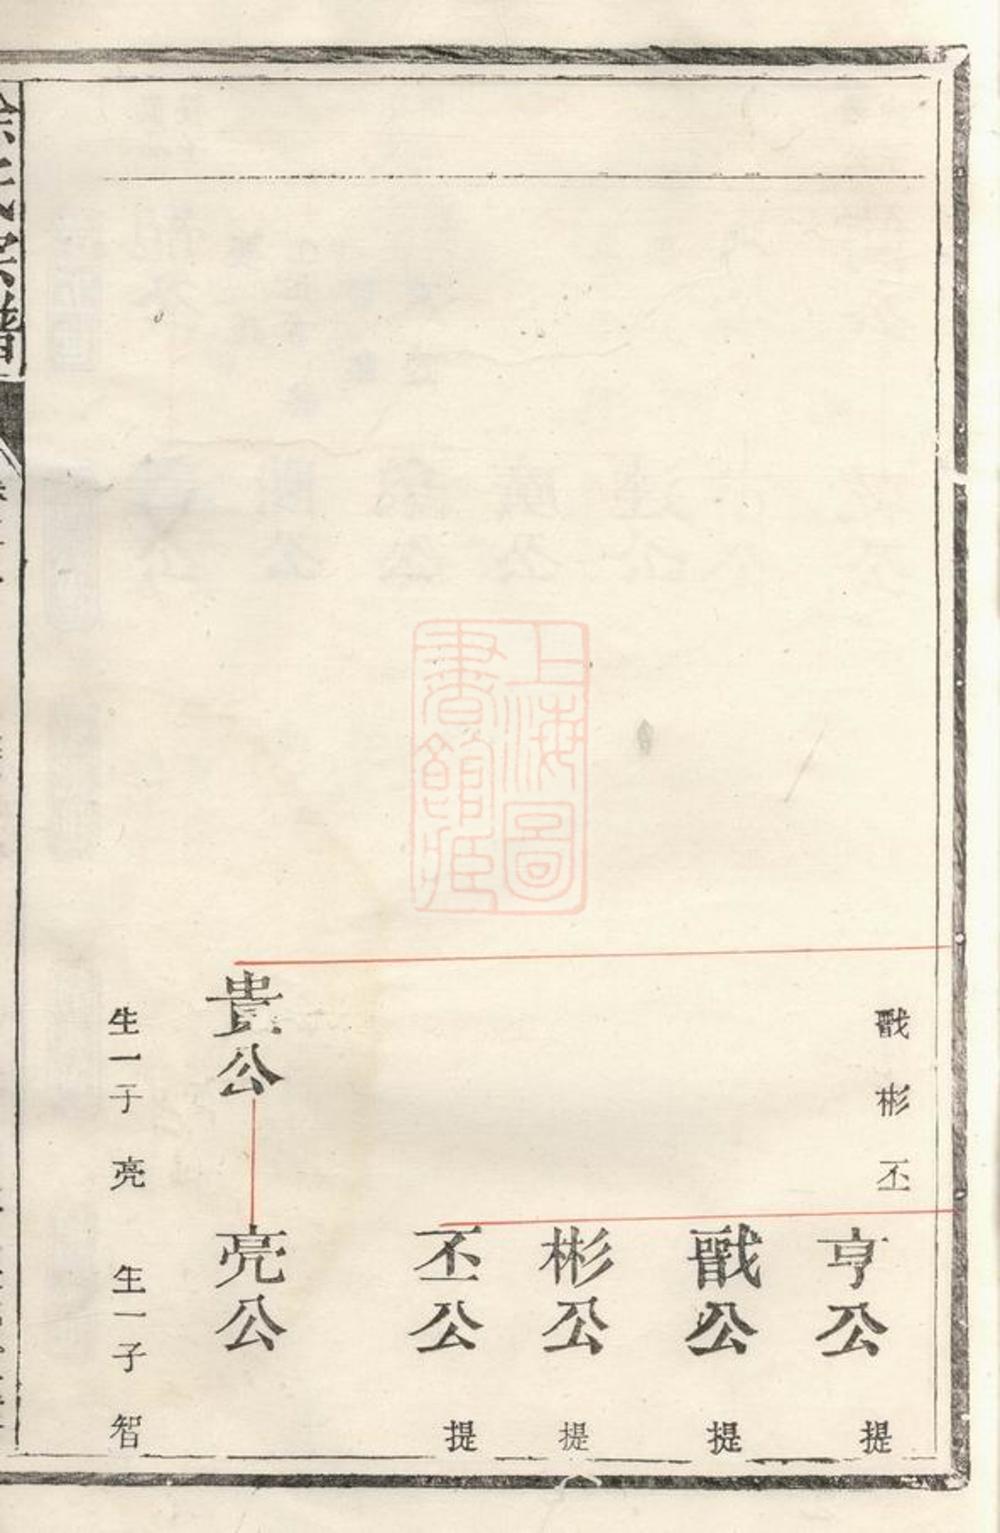 戬 彬 丕
亨公
提
戬公
提
彬公
提
丕公
提
貴公
亮公
生一子 亮
生一子 智
上海圖
書館藏
氏宗譜